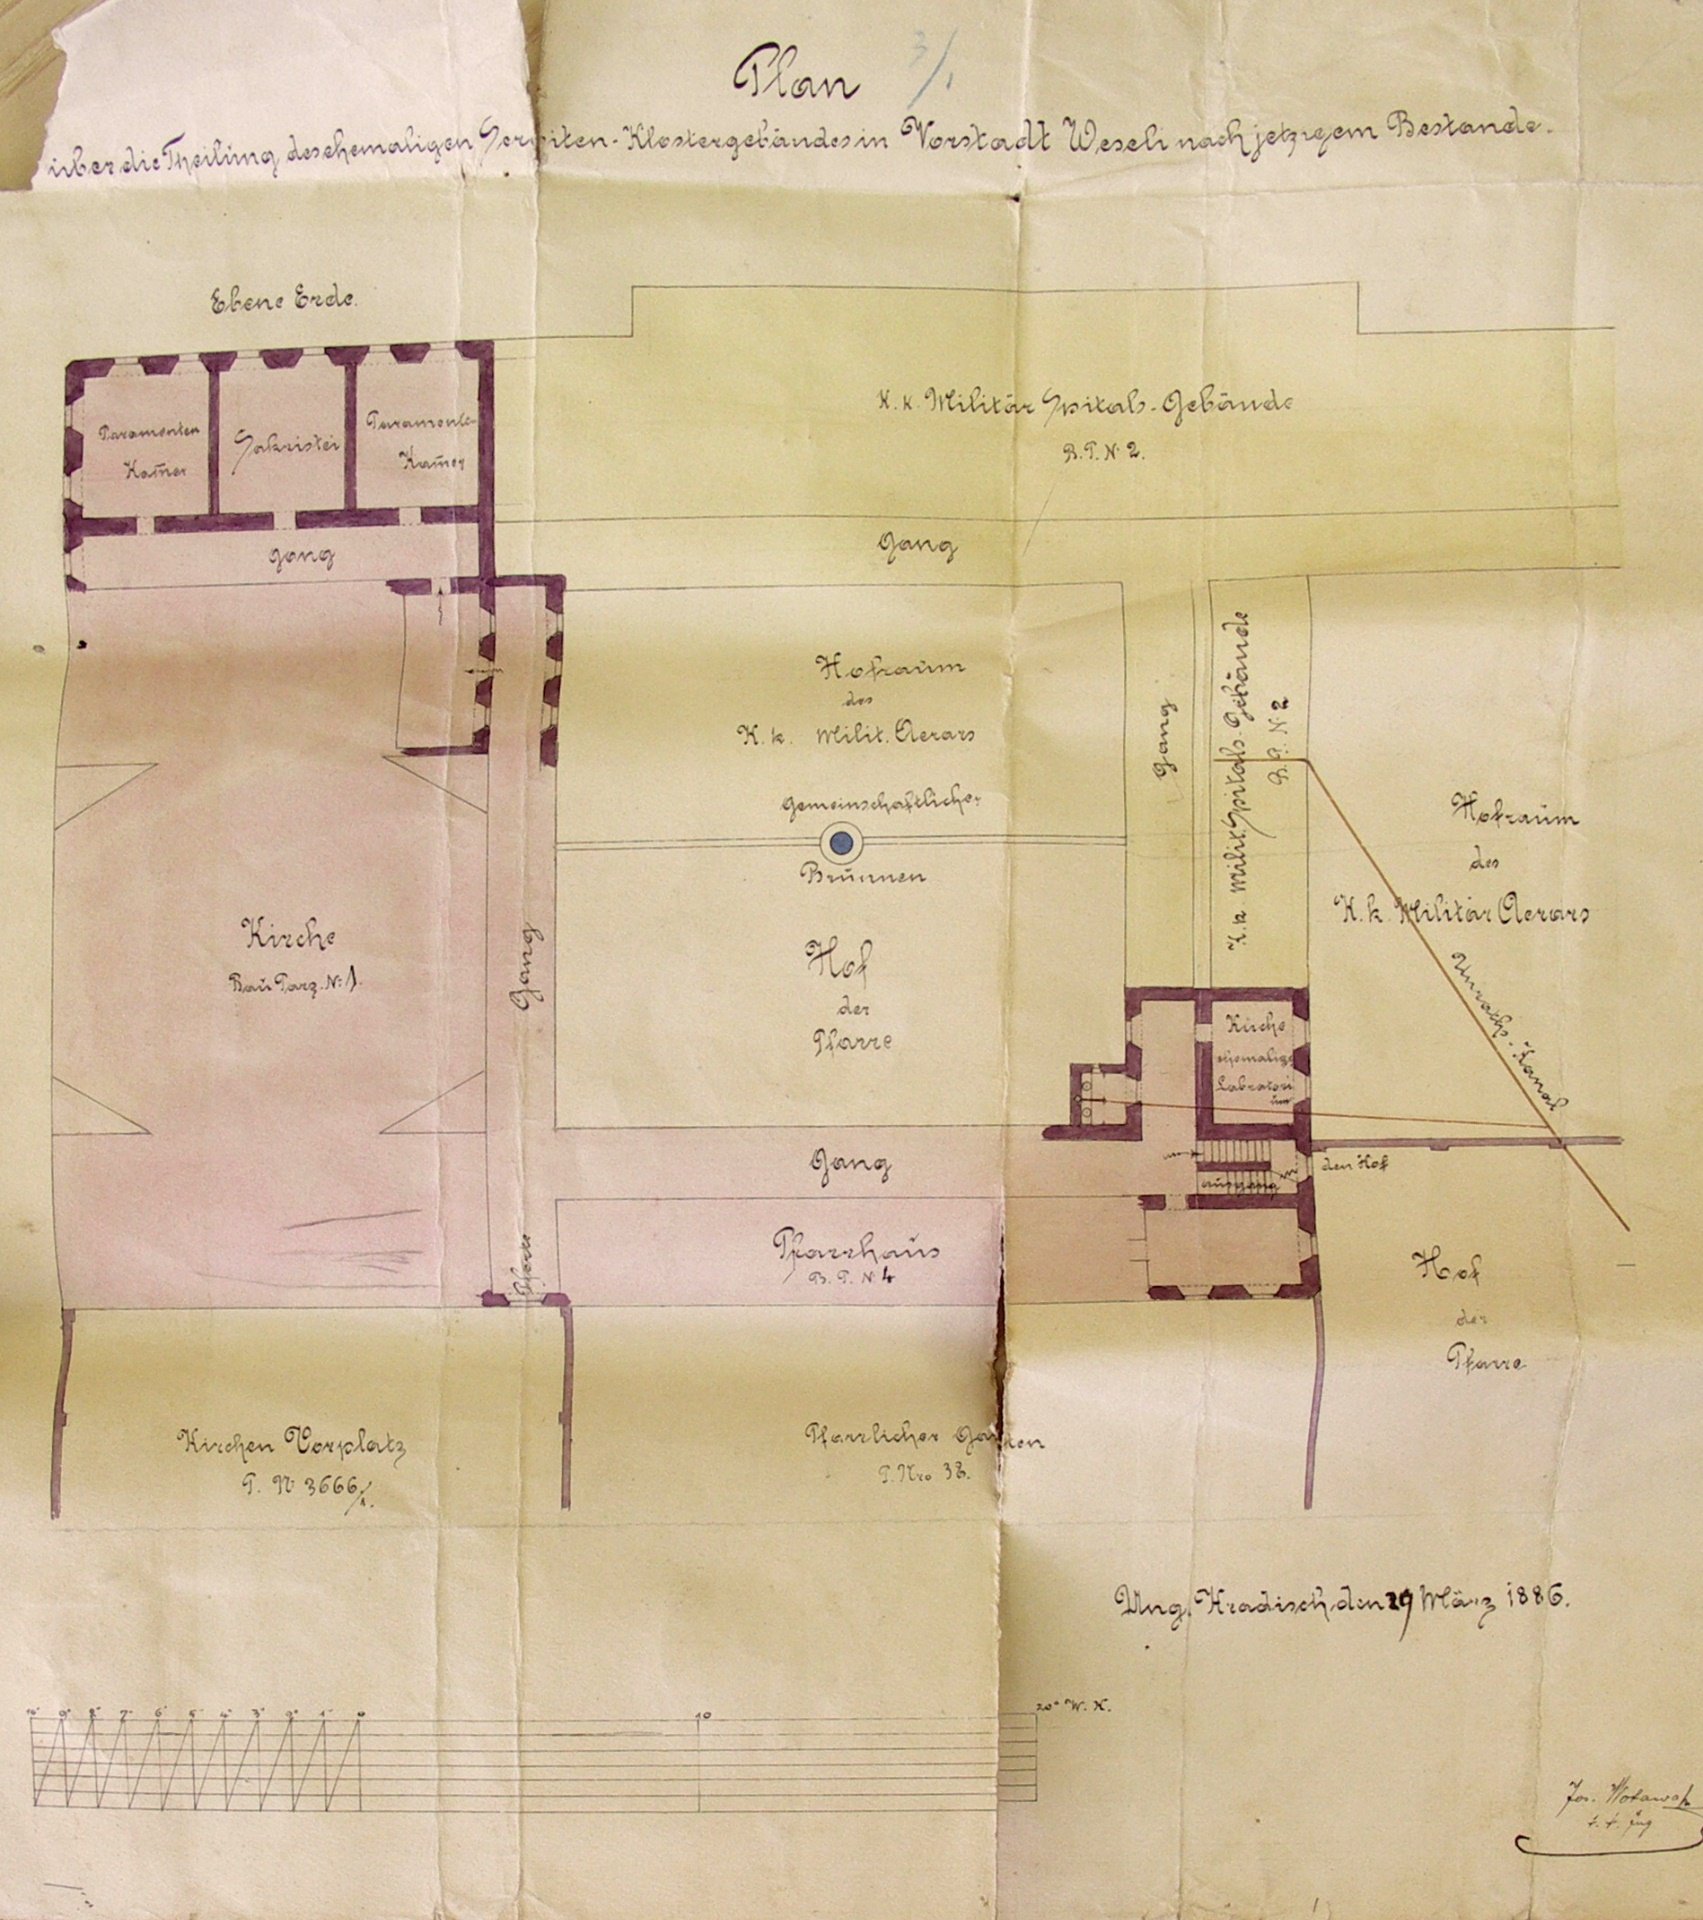 Plan
3/1
über die Theilung des ehemaligen Serviten-Klostergebäudes in Vorstadt Weseli nach jetzigem Bestande.
Ebene Erde.
K. k. Militär Spitals-Gebäude
B. P. N. 2.
Paramenten
Kam̄er
Sakristei
Paramente-
Kam̄er
Gang
Gang
Hofraum
des
K. k. Milit. Aerars
Gang
K. k. Milit. Spitals-Gebäude
B. P. N. 2
Gemeinschaftlicher
Brunnen
Hofraum
des
K. k. Militär Aerars
Unraths-Kanal
Kirche
Bau Parz. N: 1.
Gang
Hof
der
Pfarre
Kirche
ehemalige
Labratori
um
Gang
den Hof
ausgang
Pfarrhaus
B. P. N. 4
Hof
der
Pfarre
Kirchen Vorplatz
P. N. 3666/1.
Pfarrlicher Garten
P. Nro 38.
Ung. Hradisch, den 29 März 1886.
10° 9° 8° 7° 6° 5° 4° 3° 2° 1° 0 10 20° W. K.
Jos. Wotawa
k. k. Ing